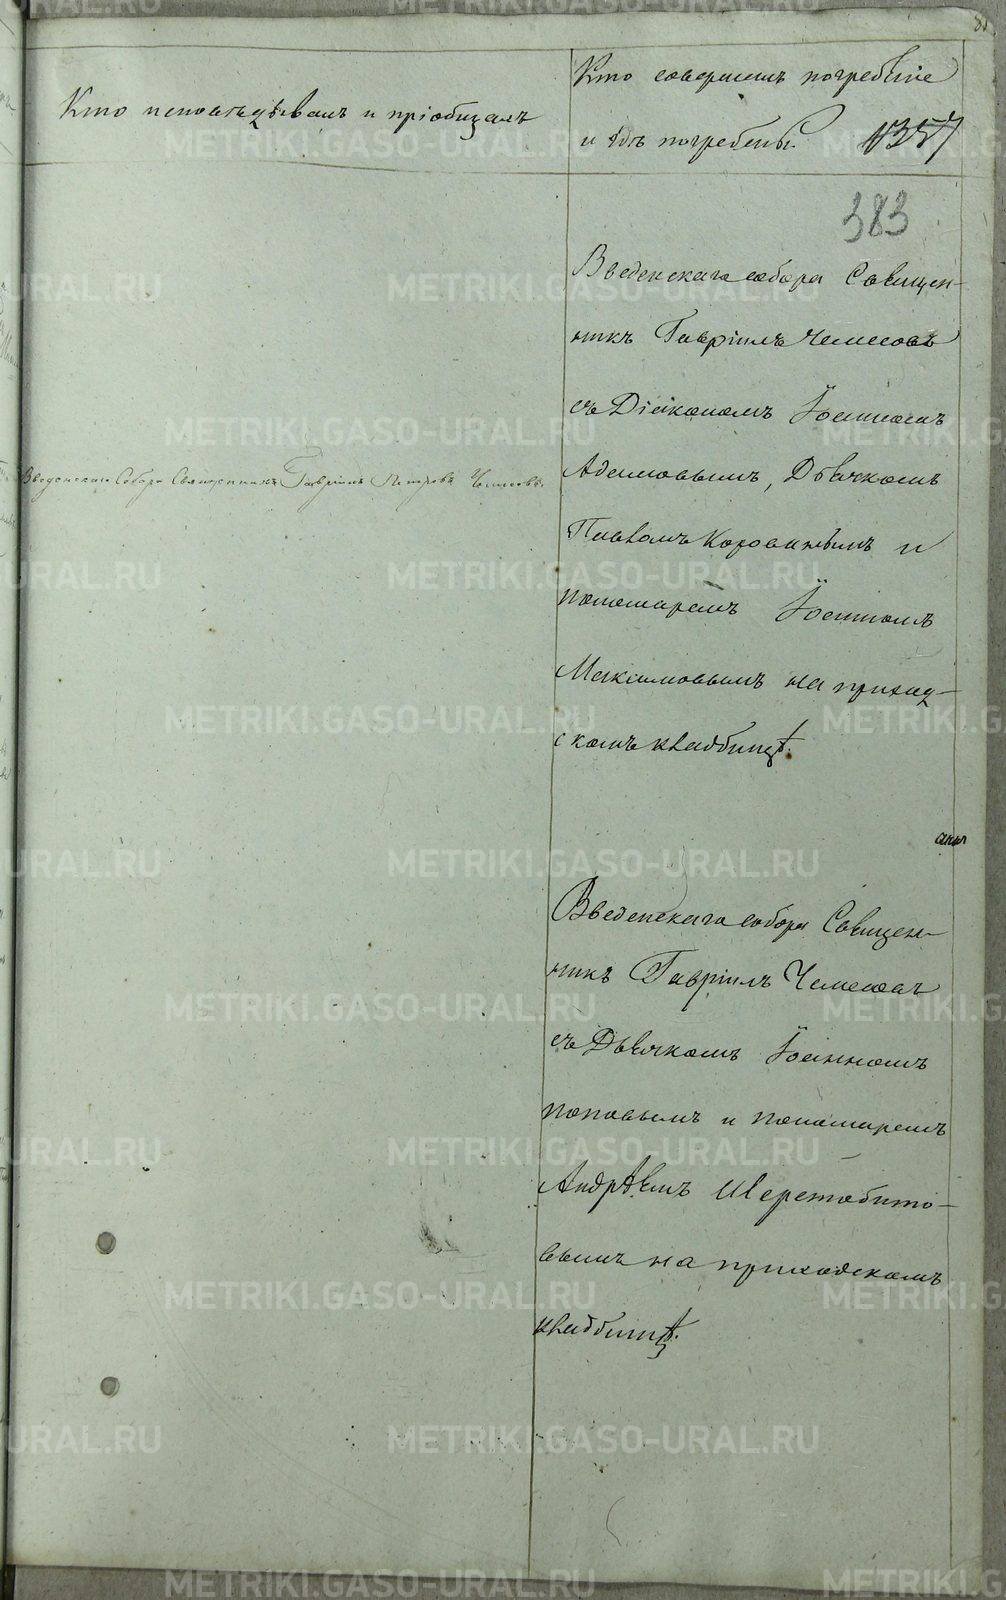 81
Кто исповѣдывалъ и пріобщалъ
Кто совершалъ погребеніе
и гдѣ погребены.
1357
383
Введенскаго собора Священ-
никъ Гавріилъ Чемесовъ
съ Діакономъ Іоанномъ
Адамовымъ, Дьячкомъ
Введенскаго Собора Священникъ Гавріилъ Петровъ Чемесовъ.
Павломъ Коровинымъ и
пономаремъ Іоанномъ
Максимовымъ на приход-
скомъ кладбищѣ.
Введенскаго собора Священ-
никъ Гавріилъ Чемесовъ
съ Дьячкомъ Іоанномъ
Поповымъ и пономаремъ
Андрѣемъ Шерстобито-
вымъ на приходскомъ
кладбищѣ.
METRIKI.GASO-URAL.RU